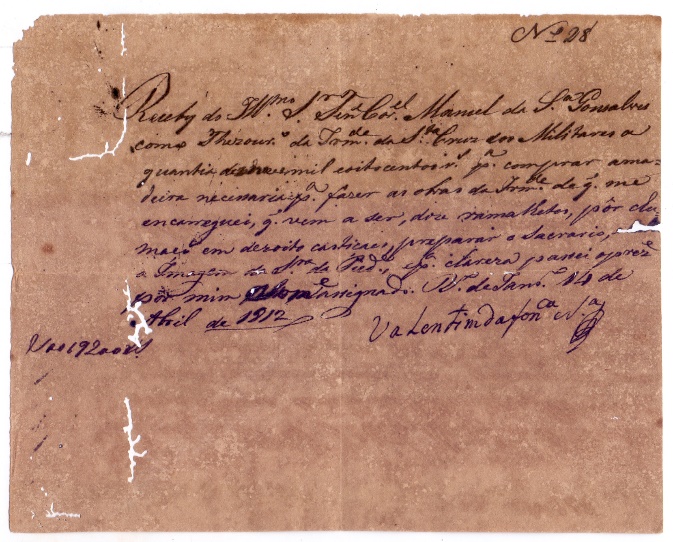 No 28
Receby do Illmo Sr Tene Corel Manuel da Sa Gonsalves
como Thezouro da Irmde da Sta Cruz dos Militares a
quantia de mil e oitocentos rs pa comprar a ma-
deira necesaria pa fazer as obras da Irmde da q. me
encarreguei, q. vem a ser, doze ramalhetes, pôr chu-
maço em dezoito castiçaes, preparar o Sacrario,
a Imagem da Sra da Piede, e pa clareza passei o preze
por mim assignado. Ro de Janro 14 de
Abril de 1812
Valentim da fonca Sa